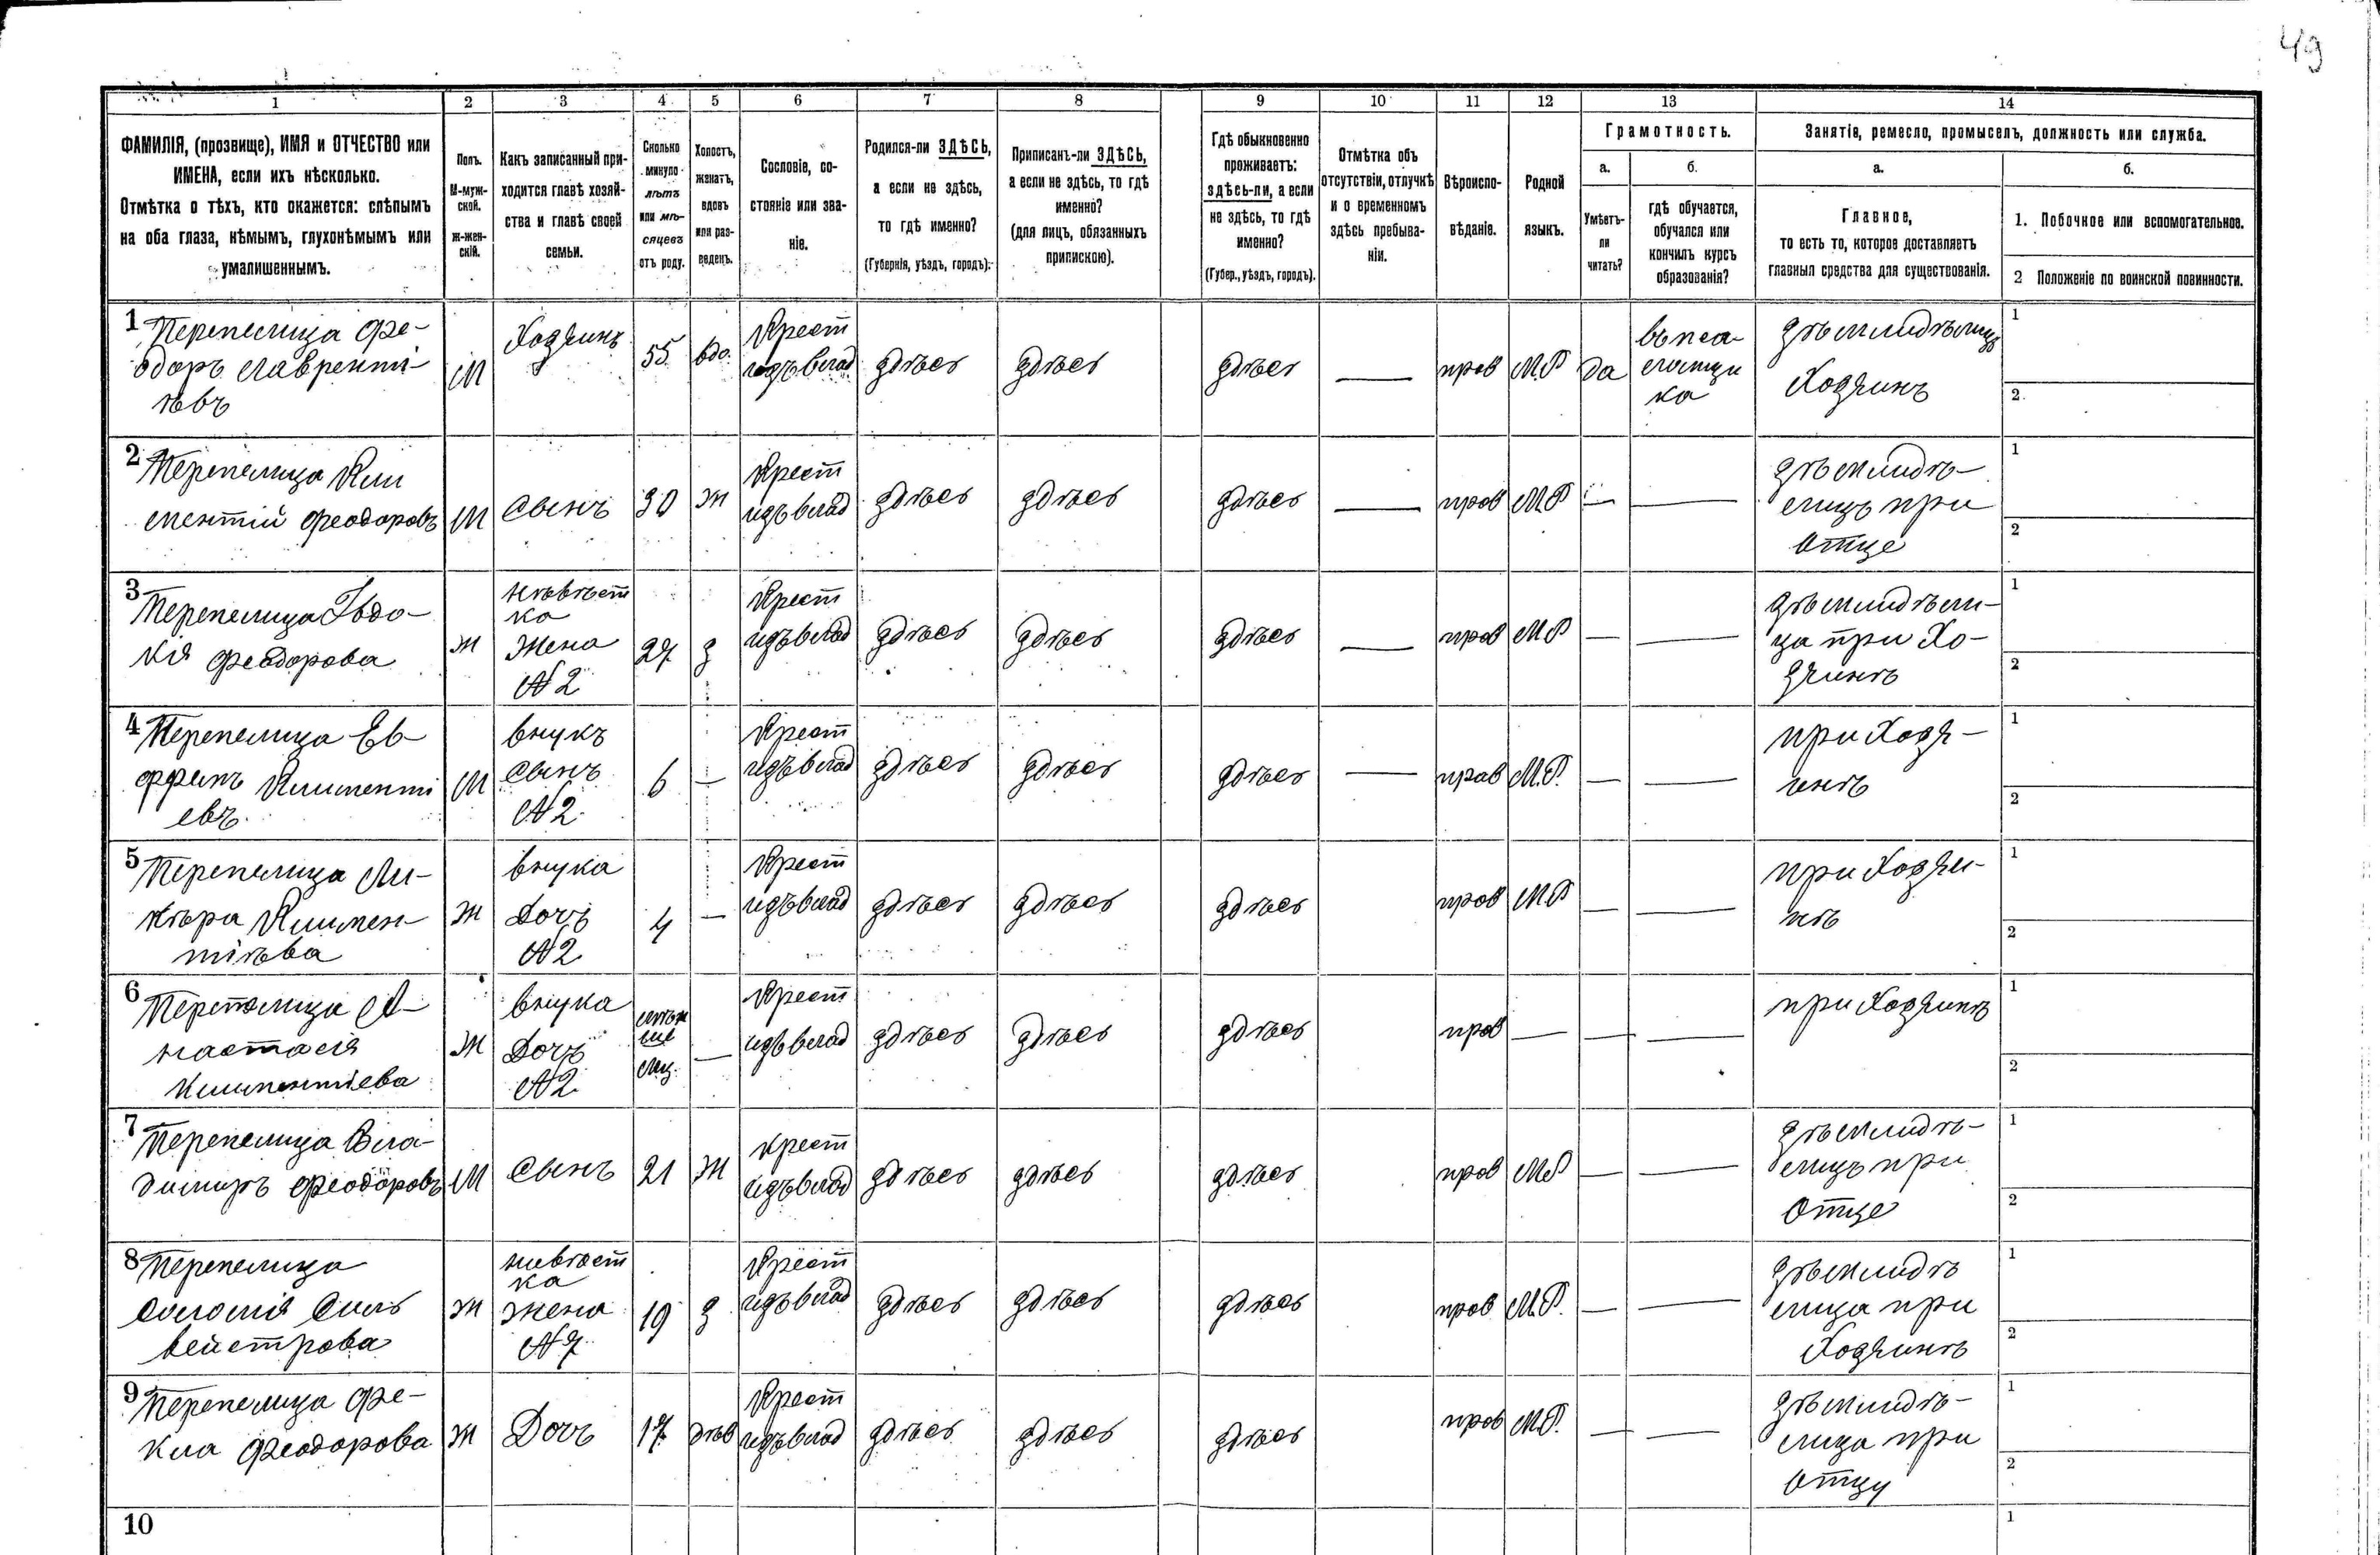 49
1 2 3 4 5 6 7 8 9 10 11 12 13 14
ФАМИЛІЯ, (прозвище), ИМЯ и ОТЧЕСТВО или
ИМЕНА, если ихъ нѣсколько.
Отмѣтка о тѣхъ, кто окажется: слѣпымъ
на оба глаза, нѣмымъ, глухонѣмымъ или
умалишеннымъ.
Полъ.
М-муж-
ской.
ж-жен-
скій.
Какъ записанный при-
ходится главѣ хозяй-
ства и главѣ своей
семьи.
Сколько
минуло
лѣтъ
или мѣ-
сяцевъ
отъ роду.
Холостъ,
женатъ,
вдовъ
или раз-
веденъ.
Сословіе, со-
стояніе или зва-
ніе.
Родился-ли ЗДѢСЬ,
а если не здѣсь,
то гдѣ именно?
(Губернія, уѣздъ, городъ).
Приписанъ-ли ЗДѢСЬ,
а если не здѣсь, то гдѣ
именно?
(для лицъ, обязанныхъ
припискою).
Гдѣ обыкновенно
проживаетъ:
здѣсь-ли, а если
не здѣсь, то гдѣ
именно?
(Губер., уѣздъ, городъ).
Отмѣтка объ
отсутствіи, отлучкѣ
и о временномъ
здѣсь пребыва-
ніи.
Вѣроиспо-
вѣданіе.
Родной
языкъ.
Грамотность.
а.
Умѣетъ-
ли
читать?
б.
гдѣ обучается,
обучался или
кончилъ курсъ
образованія?
Занятіе, ремесло, промыселъ, должность или служба.
а.
Главное,
то есть то, которое доставляетъ
главныя средства для существованія.
б.
1. Побочное или вспомогательное.
2 Положеніе по воинской повинности.
1 Перепелица Фе-
одоръ Лаврентi-
ѣвъ
М
Хозяинъ
55
вдо.
Крест
изъ влад
здѣсь
здѣсь
здѣсь
—
прав
М.Р
да
въ пса-
ломщи
ка
зѣмлидѣлицъ
Хозяинъ
1
2
2 Перепелица Кли
ментій Феодоровъ
М
Сынъ
30
Ж
Крест
изъ влад
здѣсь
здѣсь
здѣсь
—
прав
М.Р
—
—
зѣмлидѣ-
лицъ при
Отце
1
2
3 Перепелица Евдо-
кія Феодорова
Ж
нѣвѣст
ка
Жена
№2
27
з
Крест
изъ влад
здѣсь
здѣсь
здѣсь
—
прав
М.Р
—
—
зѣмлидѣли-
ца при Хо-
зяинѣ
1
2
4 Перепелица Ев-
Климентi
евъ
М
внукъ
Сынъ
№2
6
—
Крест
изъ влад
здѣсь
здѣсь
здѣсь
—
прав
М.Р.
—
—
при Хозя-
инѣ
1
2
5 Перепелица Ли-
кѣра Климен-
тiѣва
Ж
внука
Дочь
№2
4
—
Крест
изъ влад
здѣсь
здѣсь
здѣсь
прав
М.Р
—
—
при Хозяи-
нѣ
1
2
6 Перепелица А-
настасія
Климентіева
Ж
внука
Дочь
№2
—
Крест
изъ влад
здѣсь
здѣсь
здѣсь
прав
—
—
—
при Хозяинѣ
1
2
7 Перепелица Вла-
димиръ Феодоровъ
М
Сынъ
21
Ж
Крест
изъ влад
здѣсь
здѣсь
здѣсь
прав
М.Р
—
—
зѣмлидѣ-
лицъ при
Отце
1
2
8 Перепелица
Соломія Силь
вейстрова
Ж
нивѣст
ка
Жена
№7
19
з
Крест
изъ влад
здѣсь
здѣсь
здѣсь
прав
М.Р.
—
—
зѣмлидѣ
лица при
Хозяинѣ
1
2
9 Перепелица Фе-
кла Феодорова
Ж
Дочь
17
дѣв
Крест
изъ влад
здѣсь
здѣсь
здѣсь
прав
М.Р.
—
—
зѣмлидѣ-
лица при
Отцу
1
2
10
1